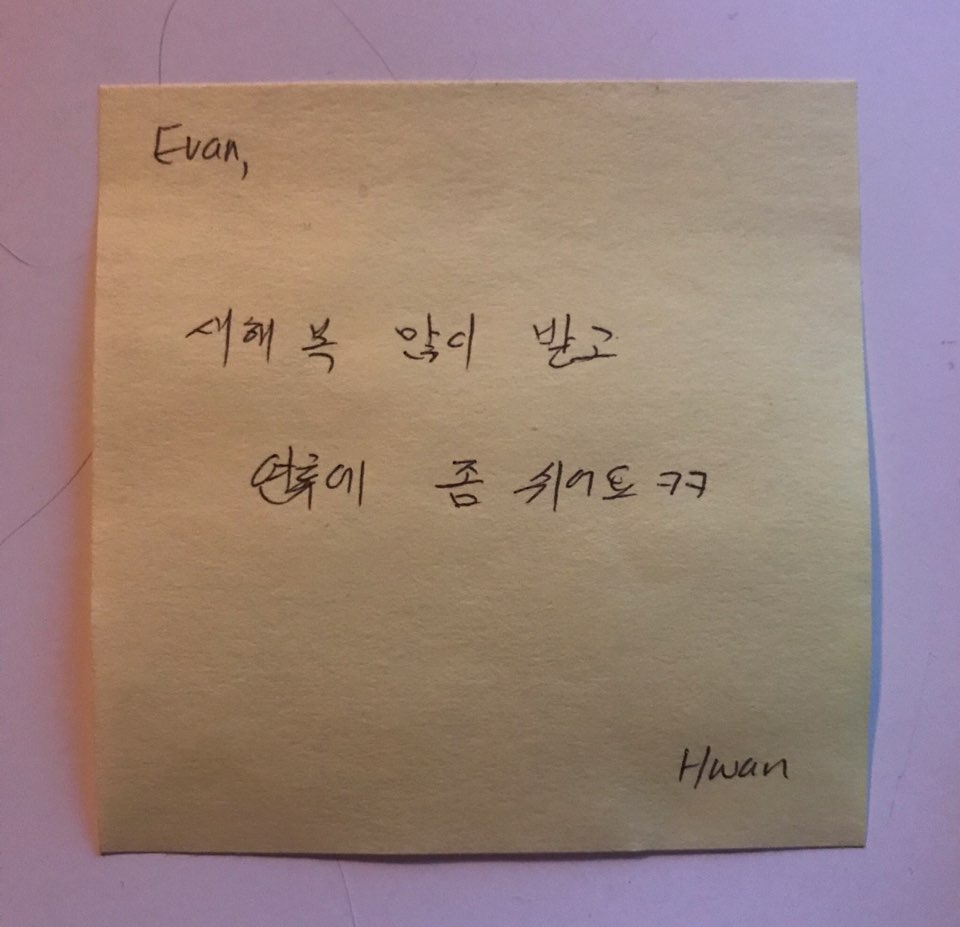 Evan,
새해 복 많이 받고
연휴에 좀 쉬어요 ㅋㅋ
Hwan